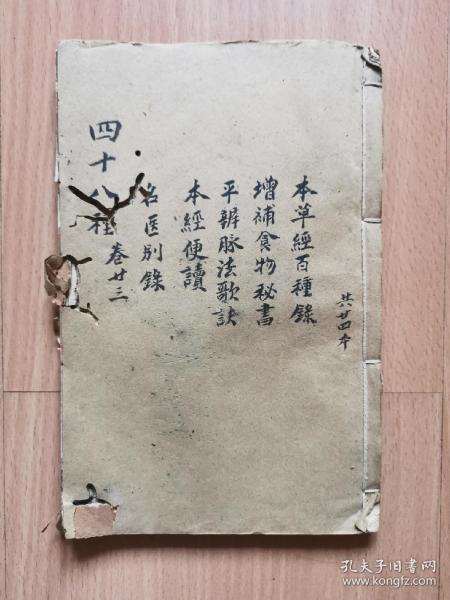 共廿四本
本草經百種錄
增補食物秘書
平辨脉法歌訣
本經便讀
名医別錄
四十八種 卷廿三
孔夫子旧书网
www.kongfz.com